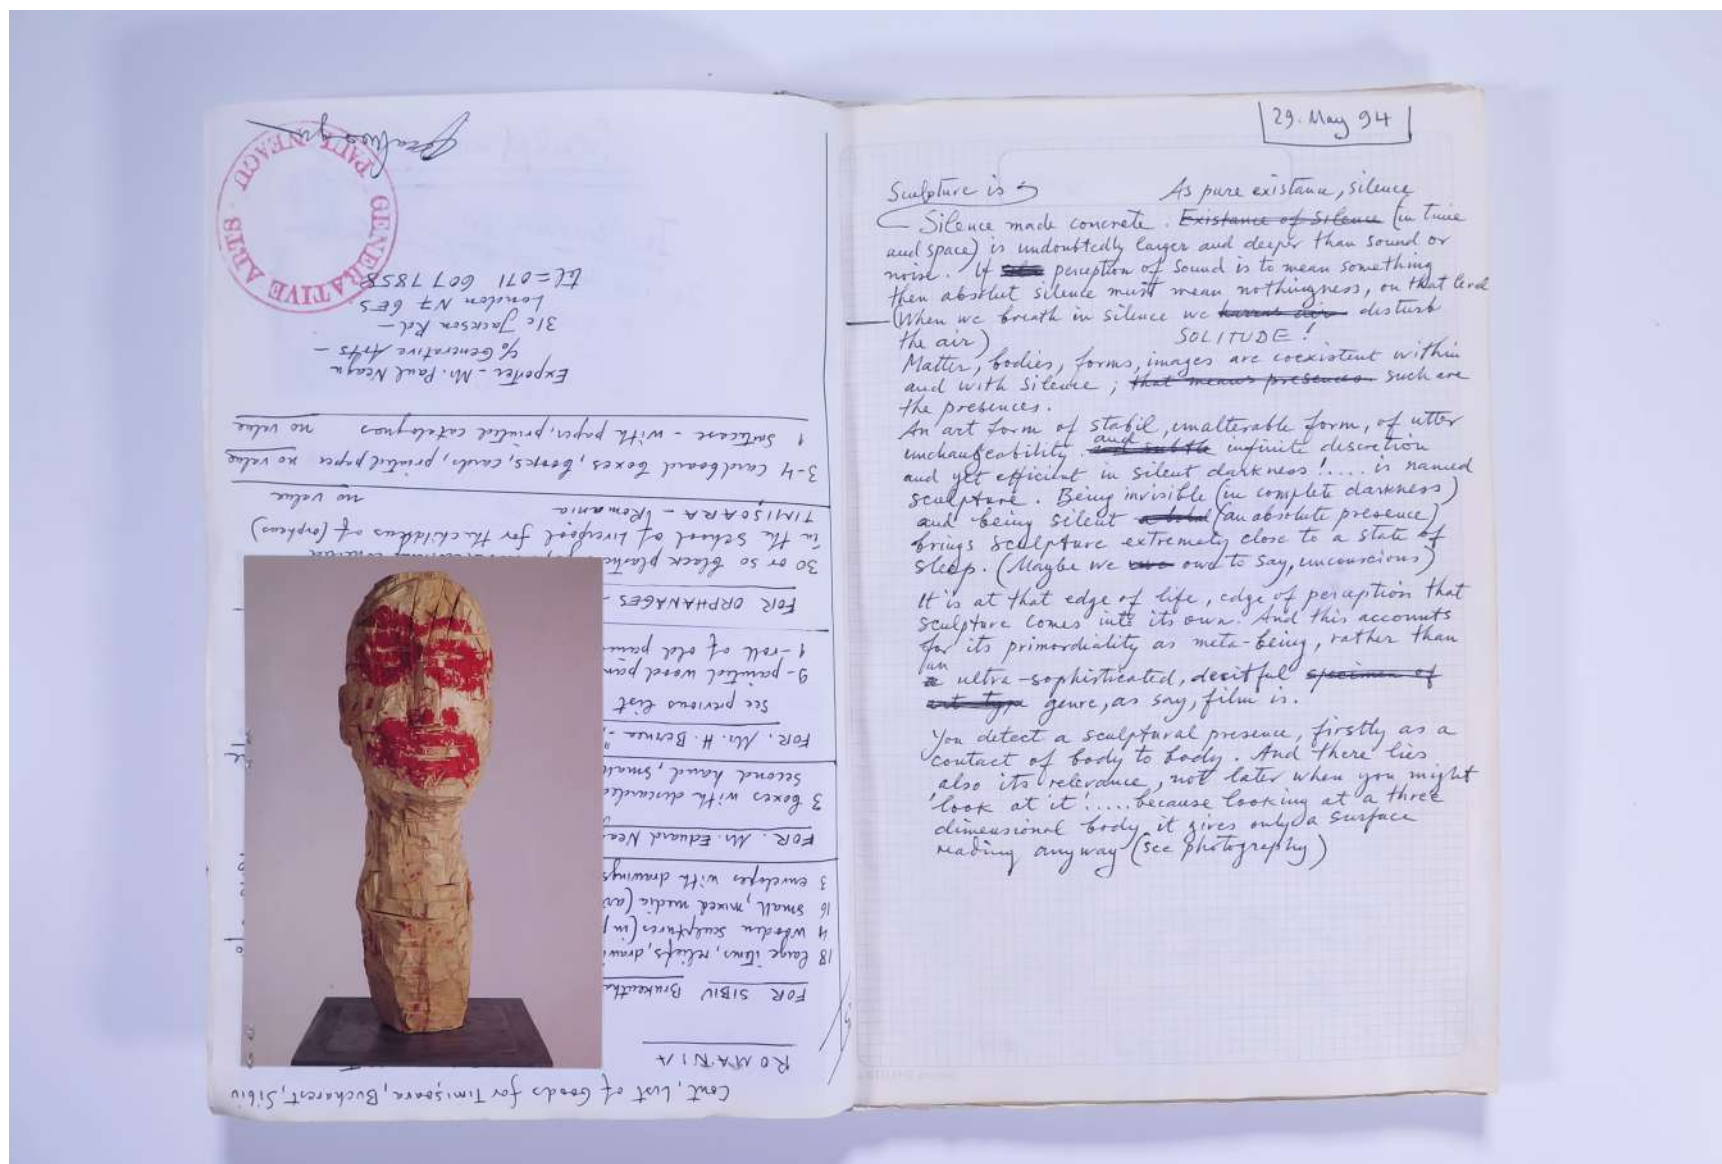 Cont. List of Goods for Timişoara, Bucharest, Sibiu
ROMANIA
FOR SIBIU Brukentha
18 large items, reliefs, drawi
4 wooden sculptures (in p
16 small, mixed media (ar
3 envelopes with drawings
FOR. Mr. Eduard Nea
3 boxes with discarded
second hand, small
FOR. Mr. H. Bernea -
See previous list
9 - painted wood pan
1 - roll of old pain
FOR ORPHANAGES -
30 or so black plastic
in the School of Liverpool for the childrens of (orpheus)
TIMIŞOARA - Romania no value
3-4 Cardboard boxes, books, cards, printed paper no value
1 Suitcase - with paper, printed catalogues no value
Exporter - Mr. Paul Neagu
c/o Generative Arts -
31c Jackson Rd -
London N7 6ES
tel = 071 607 7858
PAUL NEAGU · GENERATIVE ARTS ·
29. May 94
Sculpture is As pure existance, silence
Silence made concrete. Existance of Silence (in time
and space) is undoubtedly larger and deeper than sound or
noise. If perception of sound is to mean something
then absolut silence must mean nothingness, on that level
(When we breath in silence we disturb
the air) SOLITUDE!
Matter, bodies, forms, images are coexistent within
and with silence; that means presences such are
the presences.
An art form of stabil, unalterable form, of utter
unchangeability. and subtle and infinite discretion
and yet efficient in silent darkness!.... is named
sculpture. Being invisible (in complete darkness)
and being silent (an absolute presence)
brings sculpture extremely close to a state of
sleep. (Maybe we owe to say, unconscious)
It is at that edge of life, edge of perception that
sculpture comes into its own. And this accounts
for its primordiality as meta-being, rather than
an ultra-sophisticated, deceitful specimen of
art type genre, as say, film is.
You detect a sculptural presence, firstly as a
contact of body to body. And there lies
also its relevance, not later when you might
'look at it'..... because looking at a three
dimensional body it gives only a surface
reading anyway (see photography)